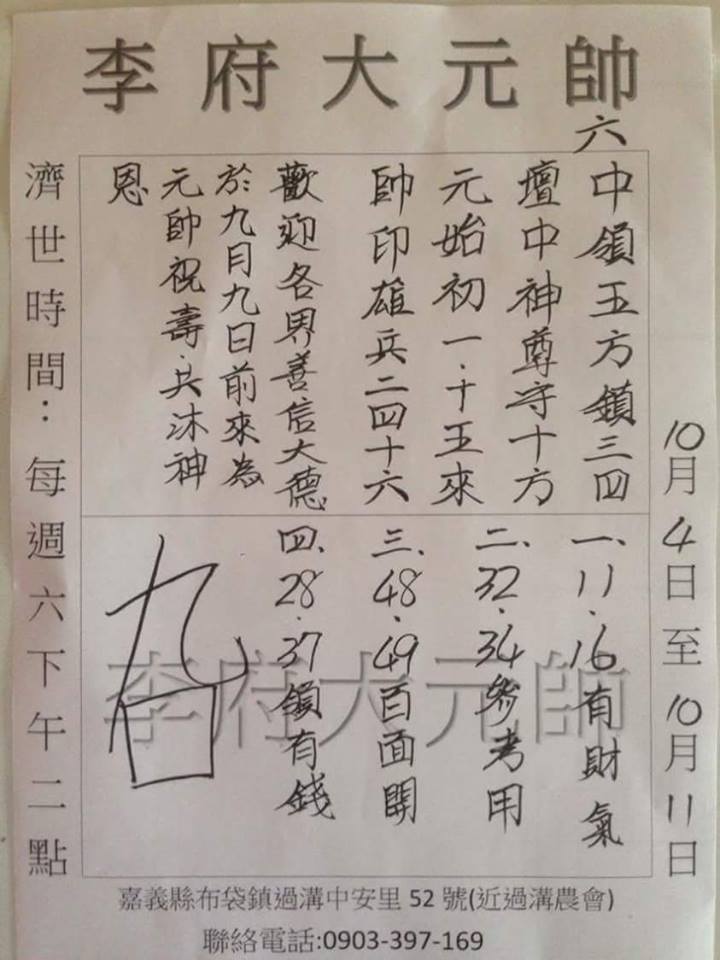 李府大元帥
10月4日至10月11日
六
中領五方鎮三四
壇中神尊守十方
元始初一·十五來
帥印雄兵二四十六
歡迎各界善信大德
於九月九日前來為
元帥祝壽·共沐神
恩
濟世時間：每週六下午二點
一、11·16有財氣
二、32·34參考用
三、48·49百面開
四、28·37領有錢
九
李府大元帥
嘉義縣布袋鎮過溝中安里 52 號(近過溝農會)
聯絡電話:0903-397-169